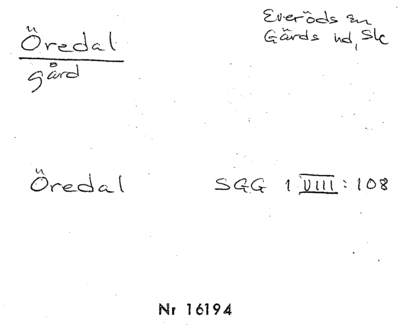 Öredal
gård
Everöds sn
Gärds hd, Sk
Öredal SGG 1 VIII:108
Nr 16194